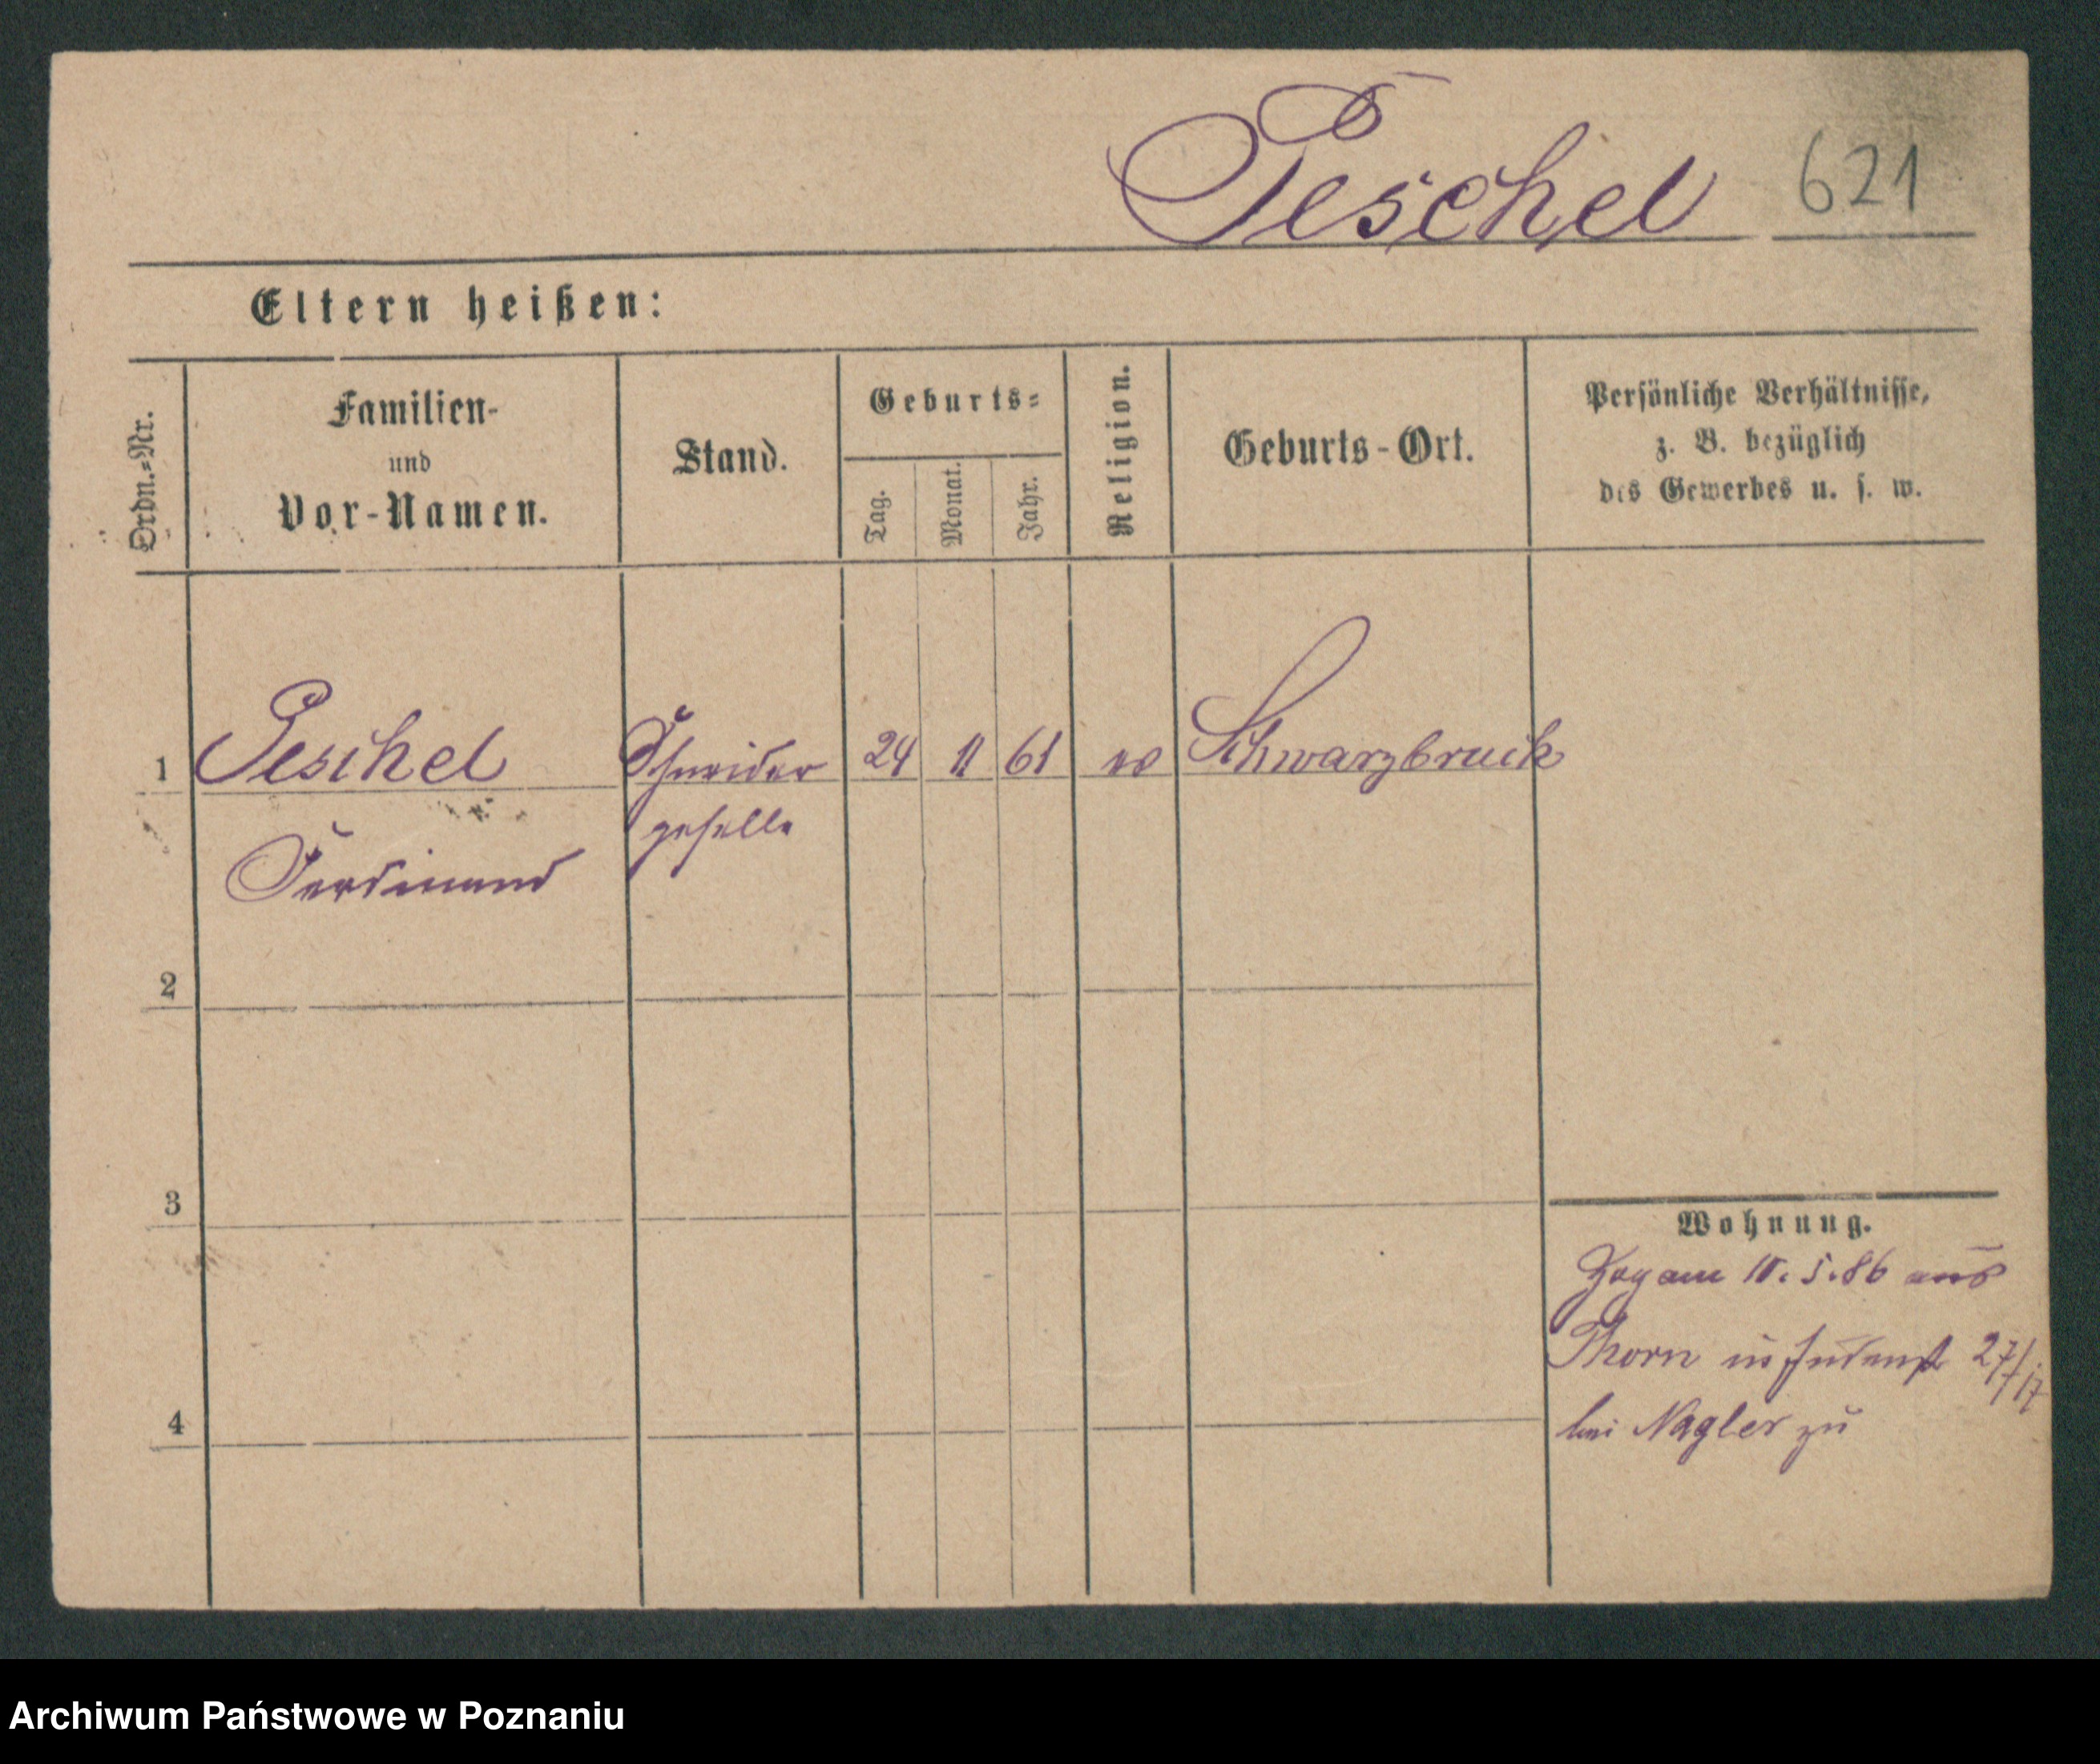 Peschel 621
Eltern heißen:
Ordn.-Nr.
Familien-
und
Vor-Namen.
Stand.
Geburts-
Tag.
Monat.
Jahr.
Religion.
Geburts-Ort.
Persönliche Verhältnisse,
z. B. bezüglich
des Gewerbes u. s. w.
1 Peschel Schneider 24 11 61 Schwarzbruch
geselle
Ferdinand
2
3
4
Wohnung.
Zog am 5.86 aus
Thorn Judenst 27/7/17
bei Nagler zu
Archiwum Państwowe w Poznaniu